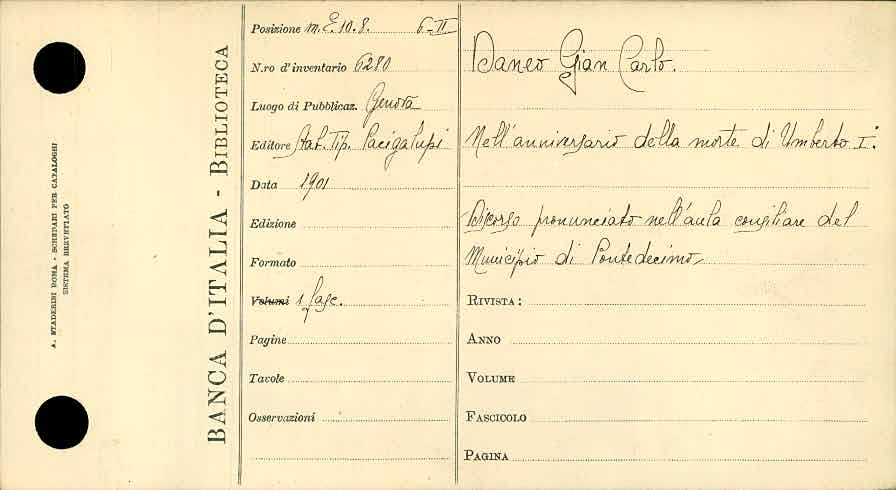 A. STADERINI ROMA - SCHEDARI PER CATALOGHI
SISTEMA BREVETTATO
BANCA D'ITALIA - BIBLIOTECA
Posizione M. E. 10. 8. 6-II
N.ro d'inventario 6280
Luogo di Pubblicaz. Genova
Editore Stab. Tip. Pacigalupi
Data 1901
Edizione
Formato
Volumi 1 fasc.
Pagine
Tavole
Osservazioni
Daneo Gian Carlo.
Nell'anniversario della morte di Umberto I.
Discorso pronunciato nell'aula consiliare del
Municipio di Pontedecimo
RIVISTA:
ANNO
VOLUME
FASCICOLO
PAGINA